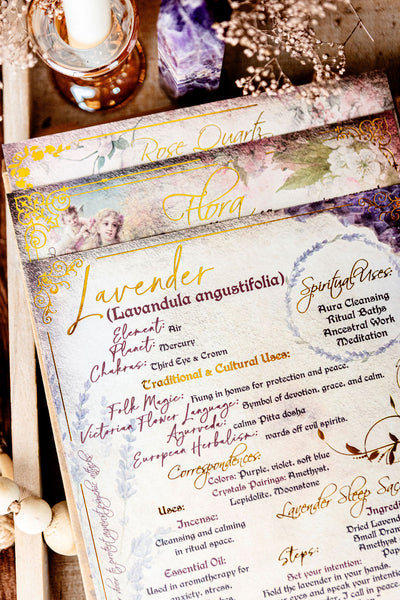 Rose Quartz
Flora
Lavender
(Lavandula angustifolia)
Element: Air
Planet: Mercury
Chakras: Third Eye & Crown
Spiritual Uses:
Aura Cleansing
Ritual Baths
Ancestral Work
Meditation
Traditional & Cultural Uses:
Folk Magic: Hung in homes for protection and peace.
Victorian Flower Language: Symbol of devotion, grace, and calm.
Ayurveda: calms Pitta dosha
European Herbalism: wards off evil spirits.
Correspondences:
Colors: Purple, violet, soft blue
Crystals Pairings: Amethyst,
Lepidolite, Moonstone
Uses:
Incense:
Cleansing and calming
in ritual space.
Essential Oil:
Used in aromatherapy
for anxiety, stress,
Lavender Sleep Sac
Ingredi
Dried Lavend
Small Draw
Amethyst
Pap
Steps:
Set your intention:
Hold the lavender in your hands.